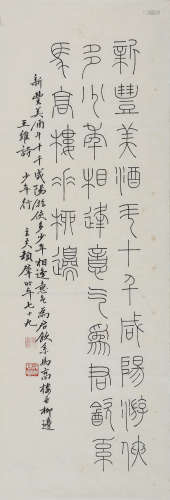 新豐美酒斗十千咸陽游俠
多少年相逢意气為君飲系
馬高樓垂柳邊
新豐美酒斗十千咸陽游俠多少年相逢意气為君飲系馬高樓垂柳邊
王維詩 少年行
年七十九